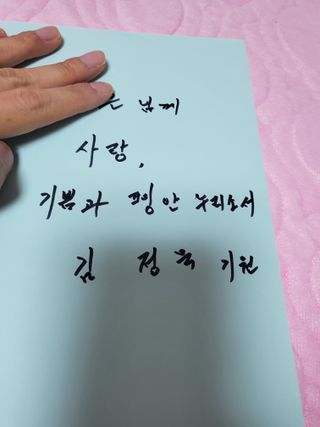 님께
사랑,
기쁨과 평안 누리소서
김 정욱 기원